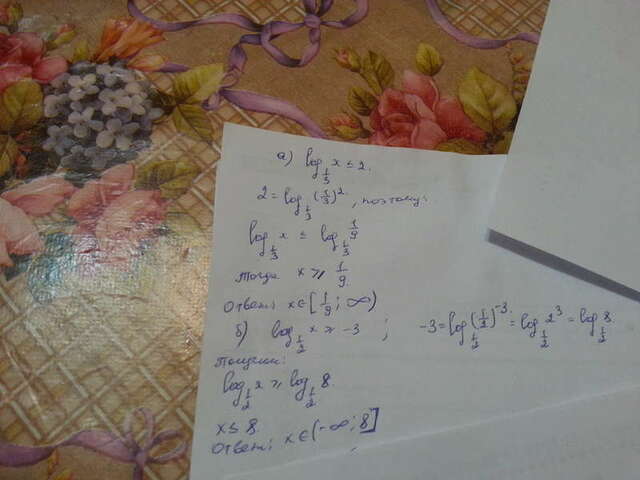 а) log_{1/3} x ≤ 2.
2 = log_{1/3} (1/3)^2, поэтому:
log_{1/3} x ≤ log_{1/3} 1/9
тогда x ⩾ 1/9.
Ответ: x ∈ [1/9; ∞)
б) log_{1/2} x ⩾ -3 ; -3 = log_{1/2} (1/2)^{-3} = log_{1/2} 2^3 = log_{1/2} 8.
Получим:
log_{1/2} x ⩾ log_{1/2} 8.
x ≤ 8.
Ответ: x ∈ (-∞; 8]